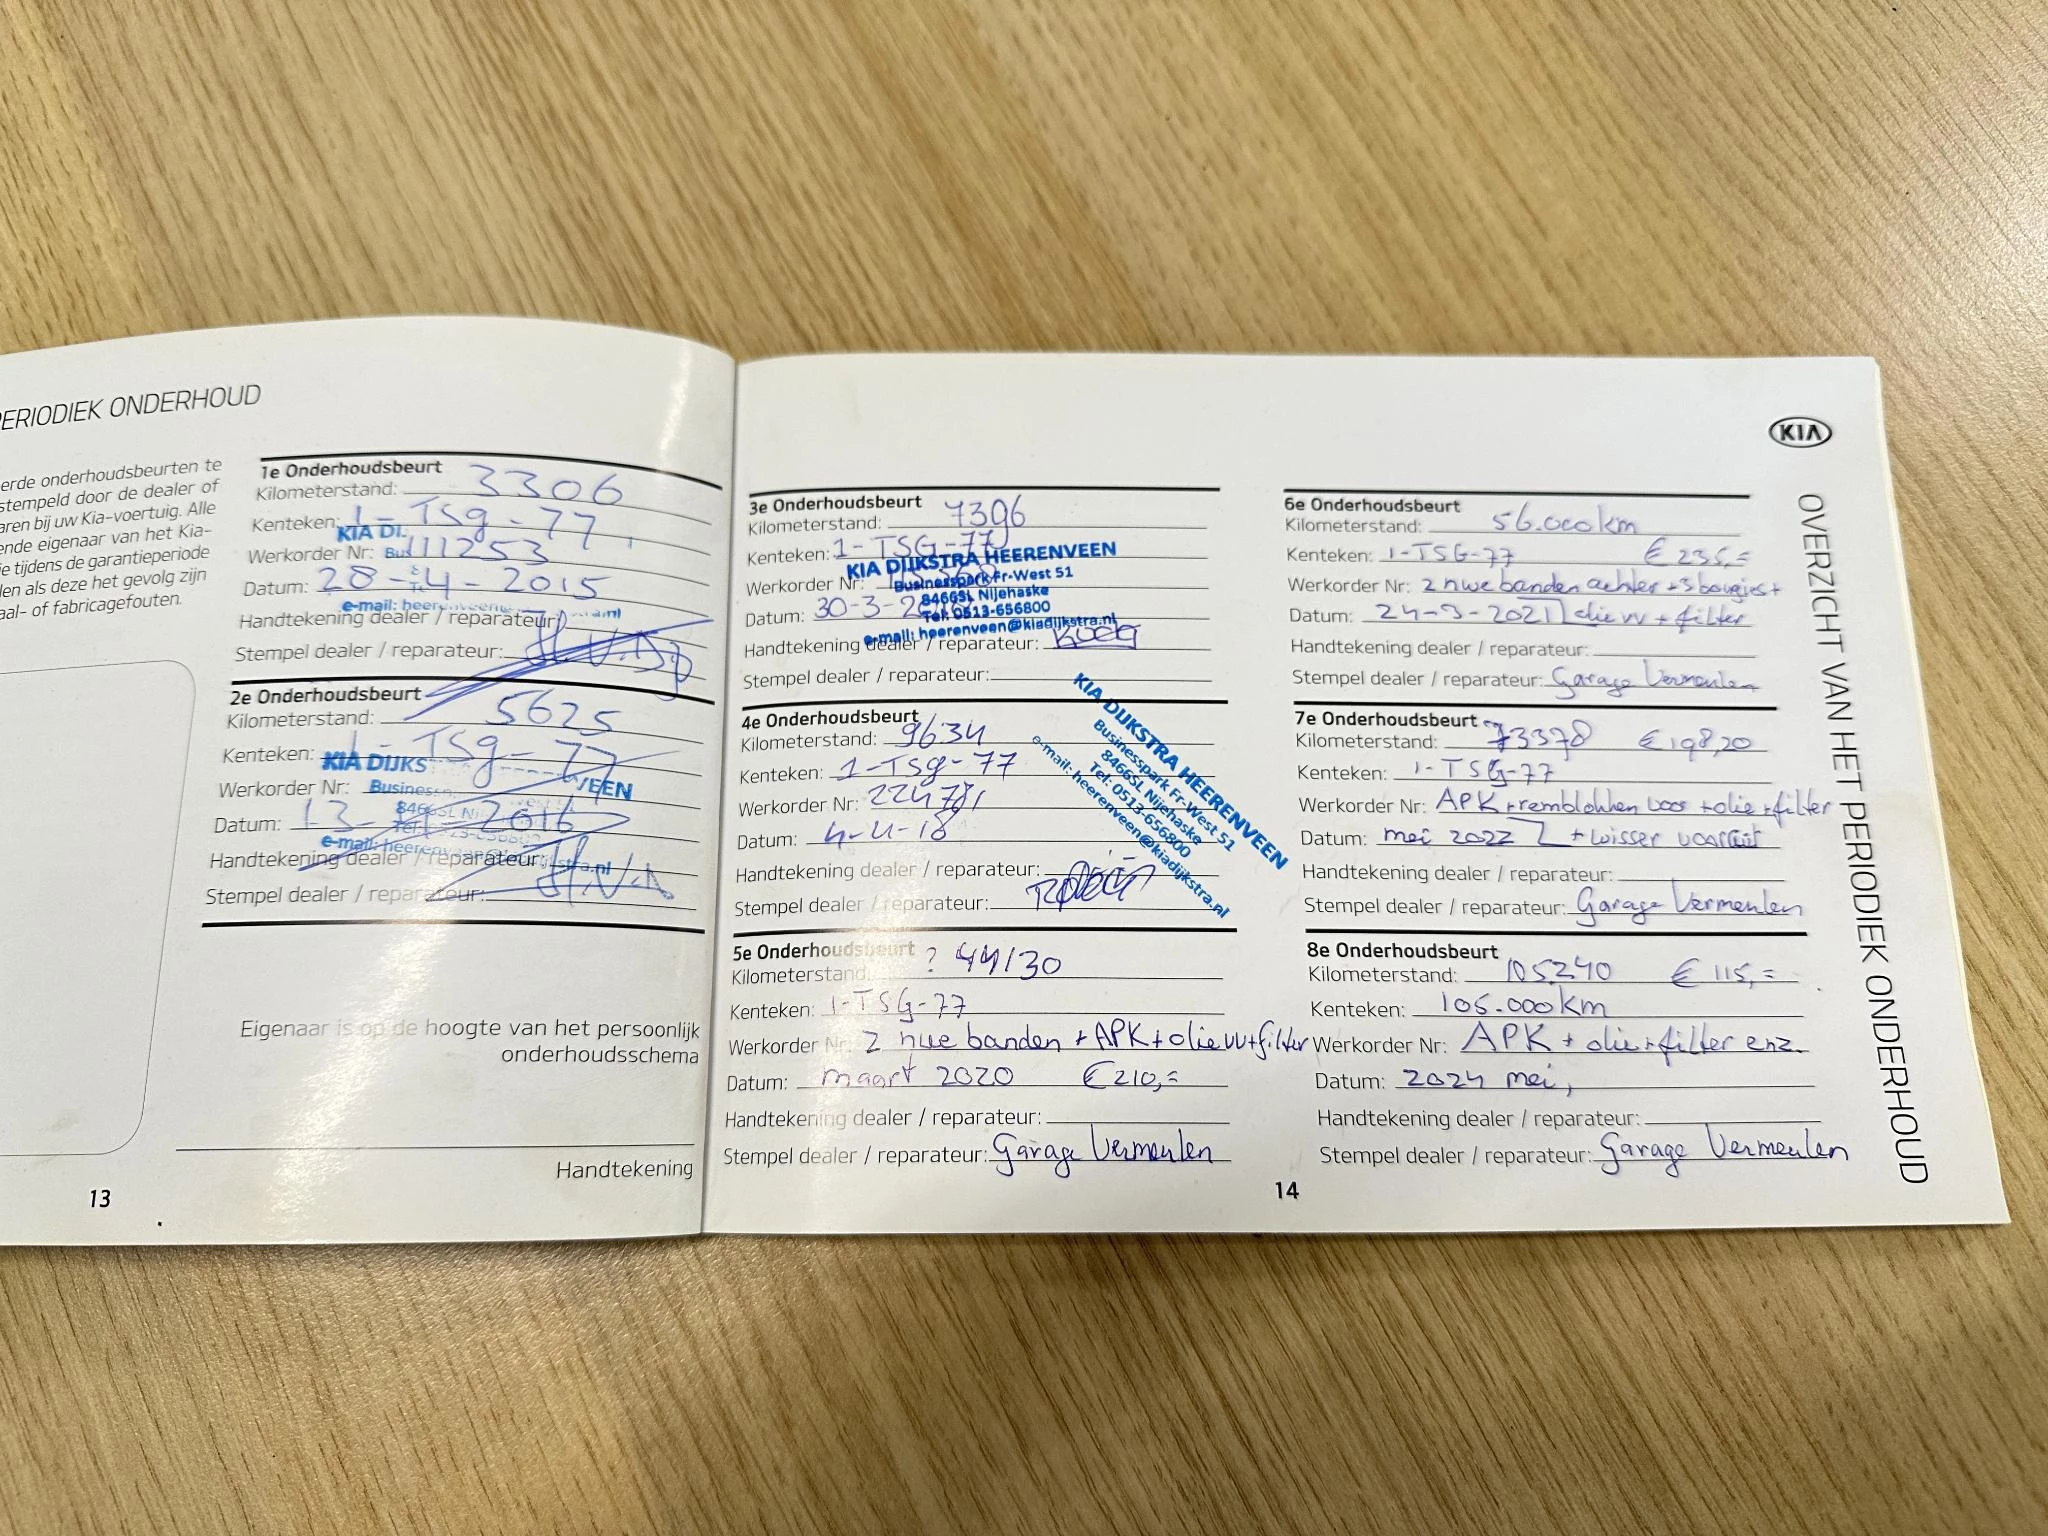 PERIODIEK ONDERHOUD
erde onderhoudsbeurten te
stempeld door de dealer of
aren bij uw Kia-voertuig. Alle
ende eigenaar van het Kia-
e tijdens de garantieperiode
len als deze het gevolg zijn
aal- of fabricagefouten.
1e Onderhoudsbeurt
Kilometerstand: 3306
Kenteken: 1-TSg-77
KIA DI
Werkorder Nr: 111253
Datum: 28-4-2015
e-mail:
Handtekening dealer / reparateur:
Stempel dealer / reparateur:
2e Onderhoudsbeurt
Kilometerstand: 5625
Kenteken: 1-TSg-77
KIA DIJKS VEEN
Werkorder Nr:
8466SL
Datum: 2016
e-mail:
Handtekening dealer / reparateur:
Stempel dealer / reparateur:
Eigenaar is op de hoogte van het persoonlijk
onderhoudsschema
Handtekening
13
3e Onderhoudsbeurt
Kilometerstand: 7396
Kenteken: 1-TSG-77
KIA DIJKSTRA HEERENVEEN
Businesspark Fr-West 51
Werkorder Nr:
8466SL Nijehaske
Datum: 30-3-
Tel: 0513-656800
e-mail: heerenveen@kiadijkstra.nl
Handtekening dealer / reparateur:
Stempel dealer / reparateur:
4e Onderhoudsbeurt
Kilometerstand: 9634
Kenteken: 1-TSg-77
Werkorder Nr:
Datum: 4-4-18
Handtekening dealer / reparateur:
Stempel dealer / reparateur:
KIA DIJKSTRA HEERENVEEN
Businesspark Fr-West 51
8466SL Nijehaske
Tel: 0513-656800
e-mail: heerenveen@kiadijkstra.nl
5e Onderhoudsbeurt
Kilometerstand: ? 44130
Kenteken: 1-TSG-77
Werkorder Nr: 2 nwe banden + APK + olie vv + filter
Datum: maart 2020 € 210,=
Handtekening dealer / reparateur:
Stempel dealer / reparateur: Garage Vermeulen
6e Onderhoudsbeurt
Kilometerstand: 56.000 km
Kenteken: 1-TSG-77 € 235,=
Werkorder Nr: 2 nwe banden achter + 3 bougies +
Datum: 24-3-2021 olie vv + filter
Handtekening dealer / reparateur:
Stempel dealer / reparateur: Garage Vermeulen
7e Onderhoudsbeurt
Kilometerstand: 73378 € 198,20
Kenteken: 1-TSG-77
Werkorder Nr: APK + remblokken voor + olie + filter
Datum: mei 2022 + wisser vooruit
Handtekening dealer / reparateur:
Stempel dealer / reparateur: Garage Vermeulen
8e Onderhoudsbeurt
Kilometerstand: 105240 € 115,=
Kenteken: 105.000 km
Werkorder Nr: APK + olie + filter enz.
Datum: 2024 mei,
Handtekening dealer / reparateur:
Stempel dealer / reparateur: Garage Vermeulen
14
KIA
OVERZICHT VAN HET PERIODIEK ONDERHOUD